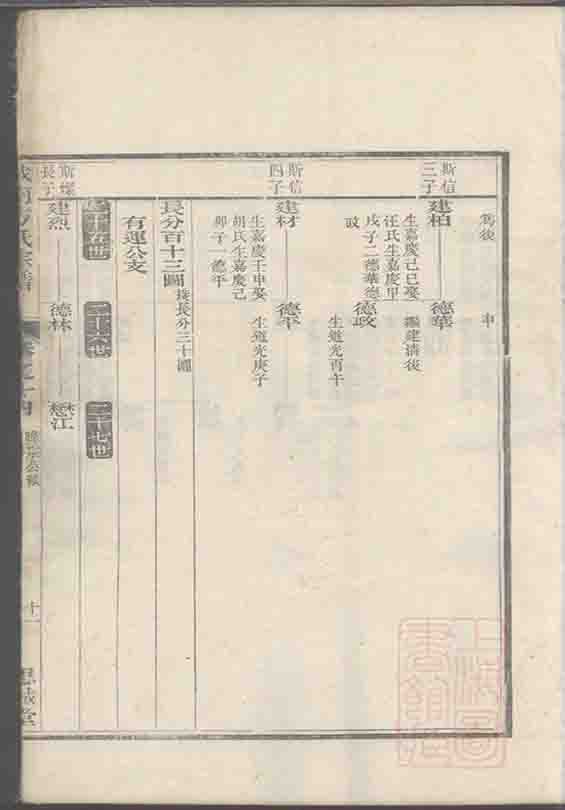 爲後
申
斯信
三子
建柏
德華
生嘉慶己巳娶
汪氏生嘉慶甲
戌子二德華德
政
繼建濤後
德政
生道光丙午
斯信
四子
建材
德平
生嘉慶壬申娶
胡氏生嘉慶己
卯子一德平
生道光庚子
長分百十三圖
接長分三十圖
有運公支
二十五世
二十六世
二十七世
斯煤
長子
建烈
德林
懋江
氏宗譜
卷之十四
十一
思誠堂
上海圖
書館藏